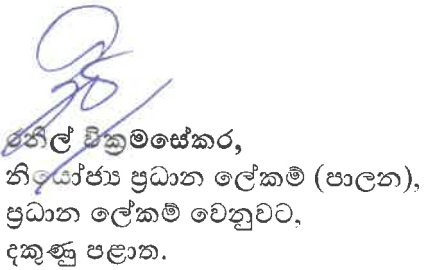 නිල් වික්‍රමසේකර,
නියෝජ්‍ය ප්‍රධාන ලේකම් (පාලන),
ප්‍රධාන ලේකම් වෙනුවට,
දකුණු පළාත.